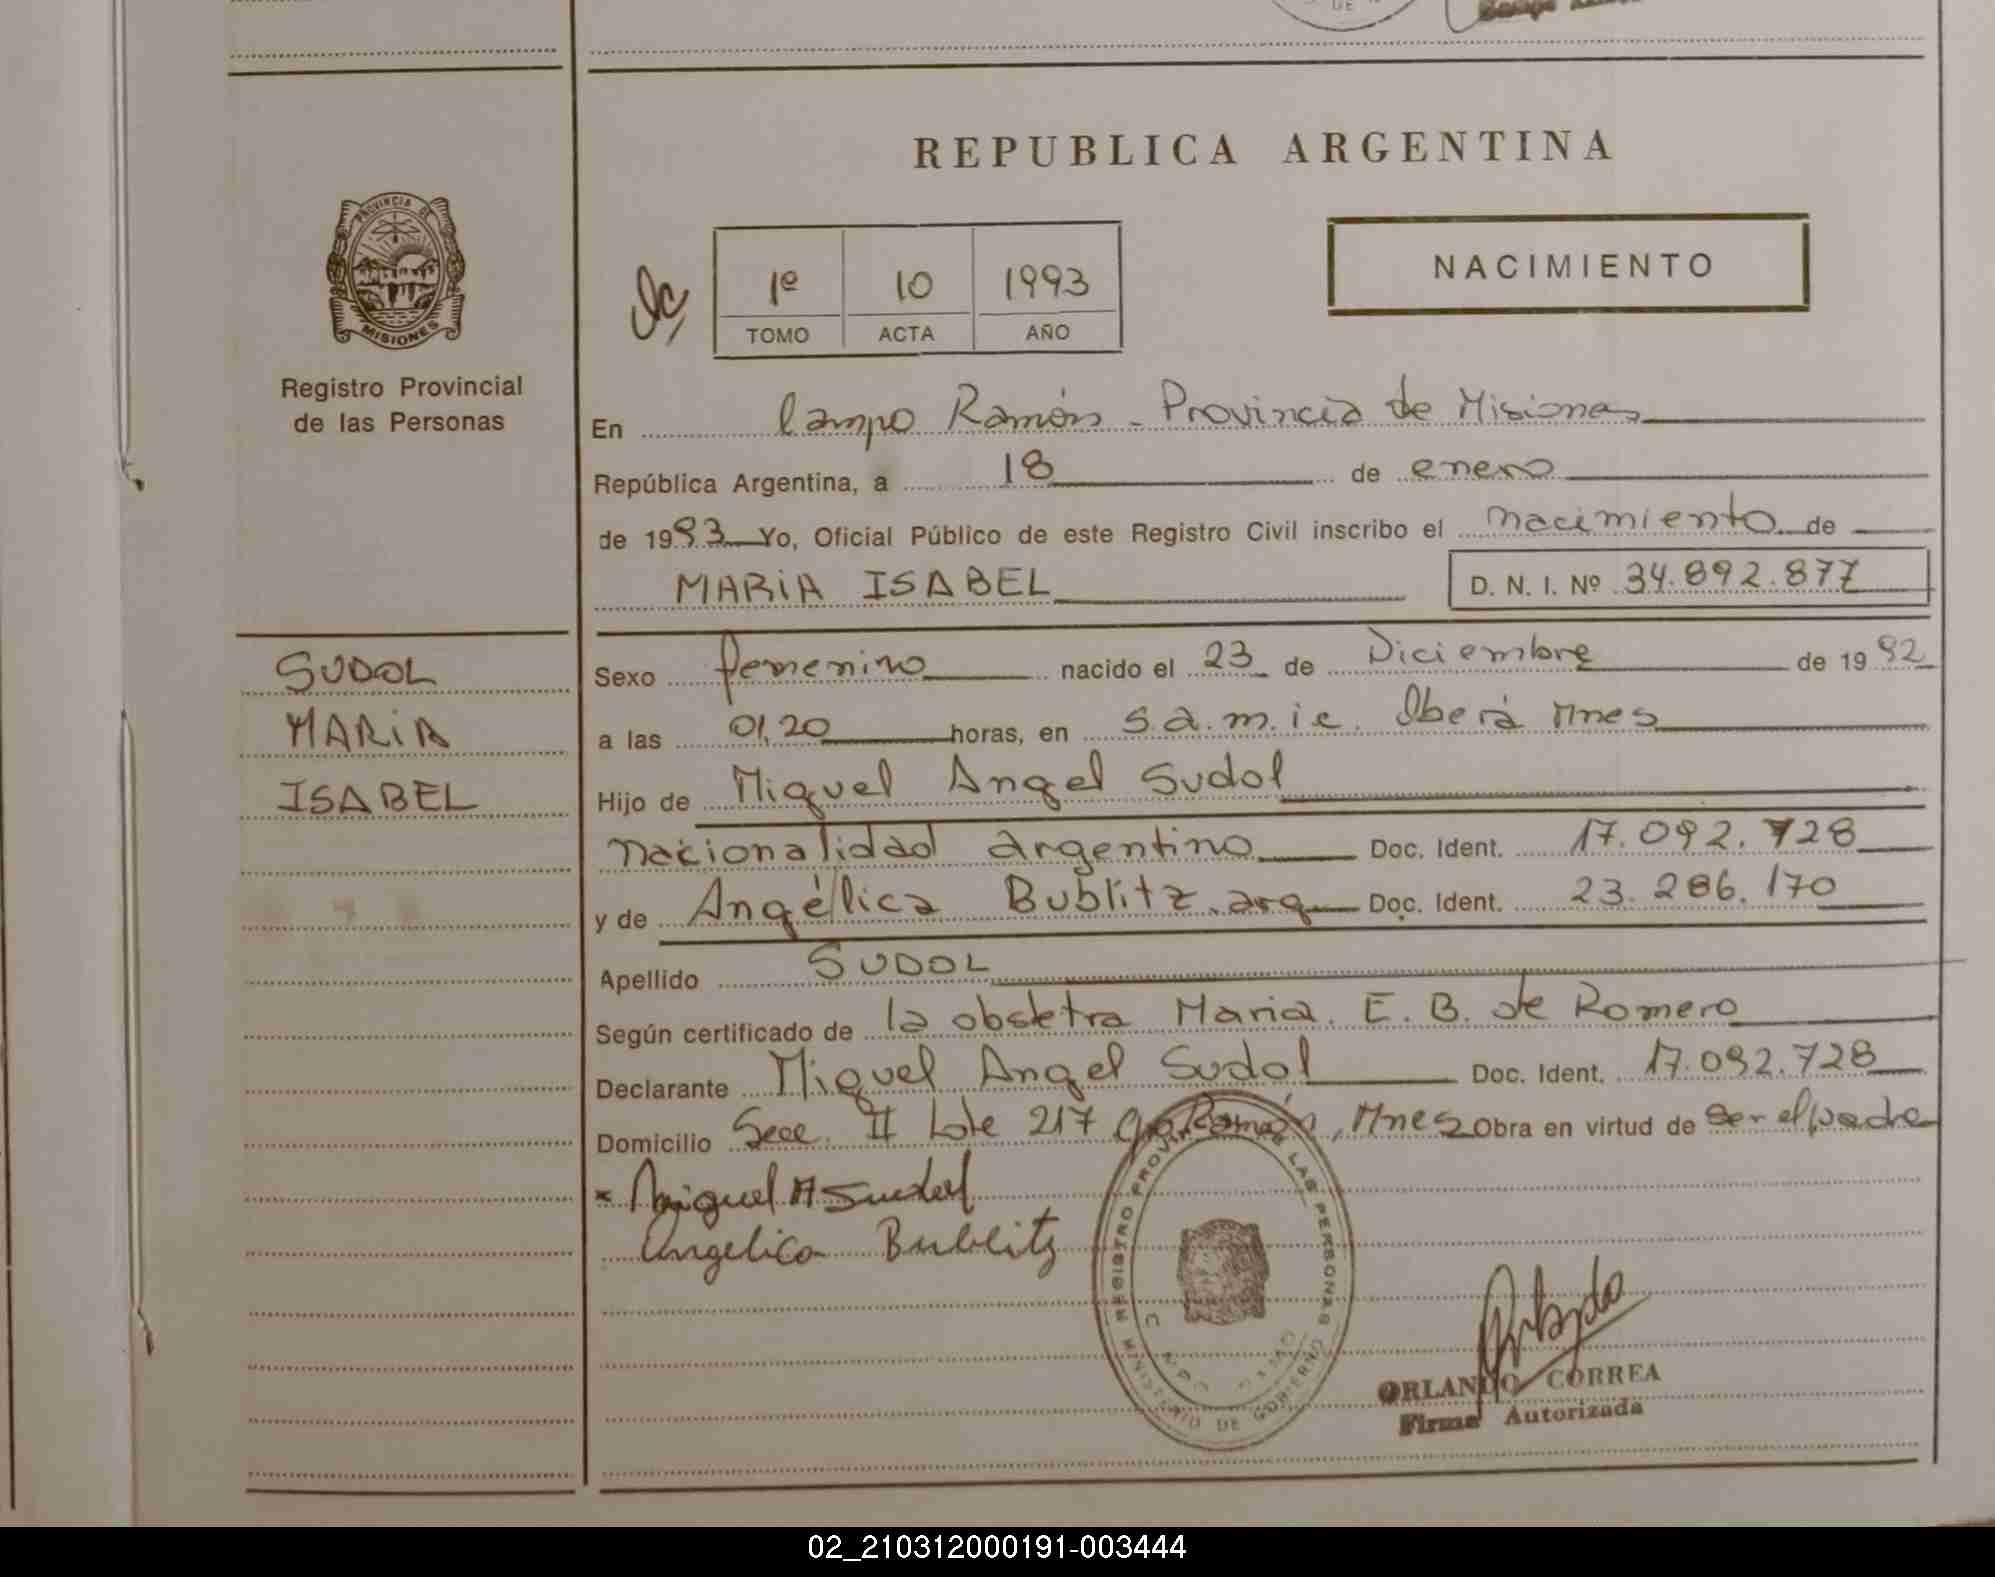 REPUBLICA ARGENTINA
PROVINCIA DE
MISIONES
Registro Provincial
de las Personas
1º 10 1993
TOMO ACTA AÑO
NACIMIENTO
En Campo Ramón - Provincia de Misiones
República Argentina, a 18 de enero
de 1993 Yo, Oficial Público de este Registro Civil inscribo el nacimiento de
MARIA ISABEL D. N. I. Nº 34.892.877
SUDOL
MARIA
ISABEL
Sexo femenino nacido el 23 de Diciembre de 1992
a las 01,20 horas, en s.a.m.i.c. Oberá Mnes
Hijo de Miguel Angel Sudol
nacionalidad argentino Doc. Ident. 17.092.728
y de Angélica Bublitz. arg Doc. Ident. 23.286.170
Apellido SUDOL
Según certificado de la obstetra Maria. E. B. de Romero
Declarante Miguel Angel Sudol Doc. Ident. 17.092.728
Domicilio Secc. II Lote 217 Cpo Ramón, Mnes Obra en virtud de ser el padre
Miguel A Sudol
Angelica Bublitz
REGISTRO PROVINCIAL DE LAS PERSONAS
MINISTERIO DE GOBIERNO
ORLANDO CORREA
Firma Autorizada
02_210312000191-003444